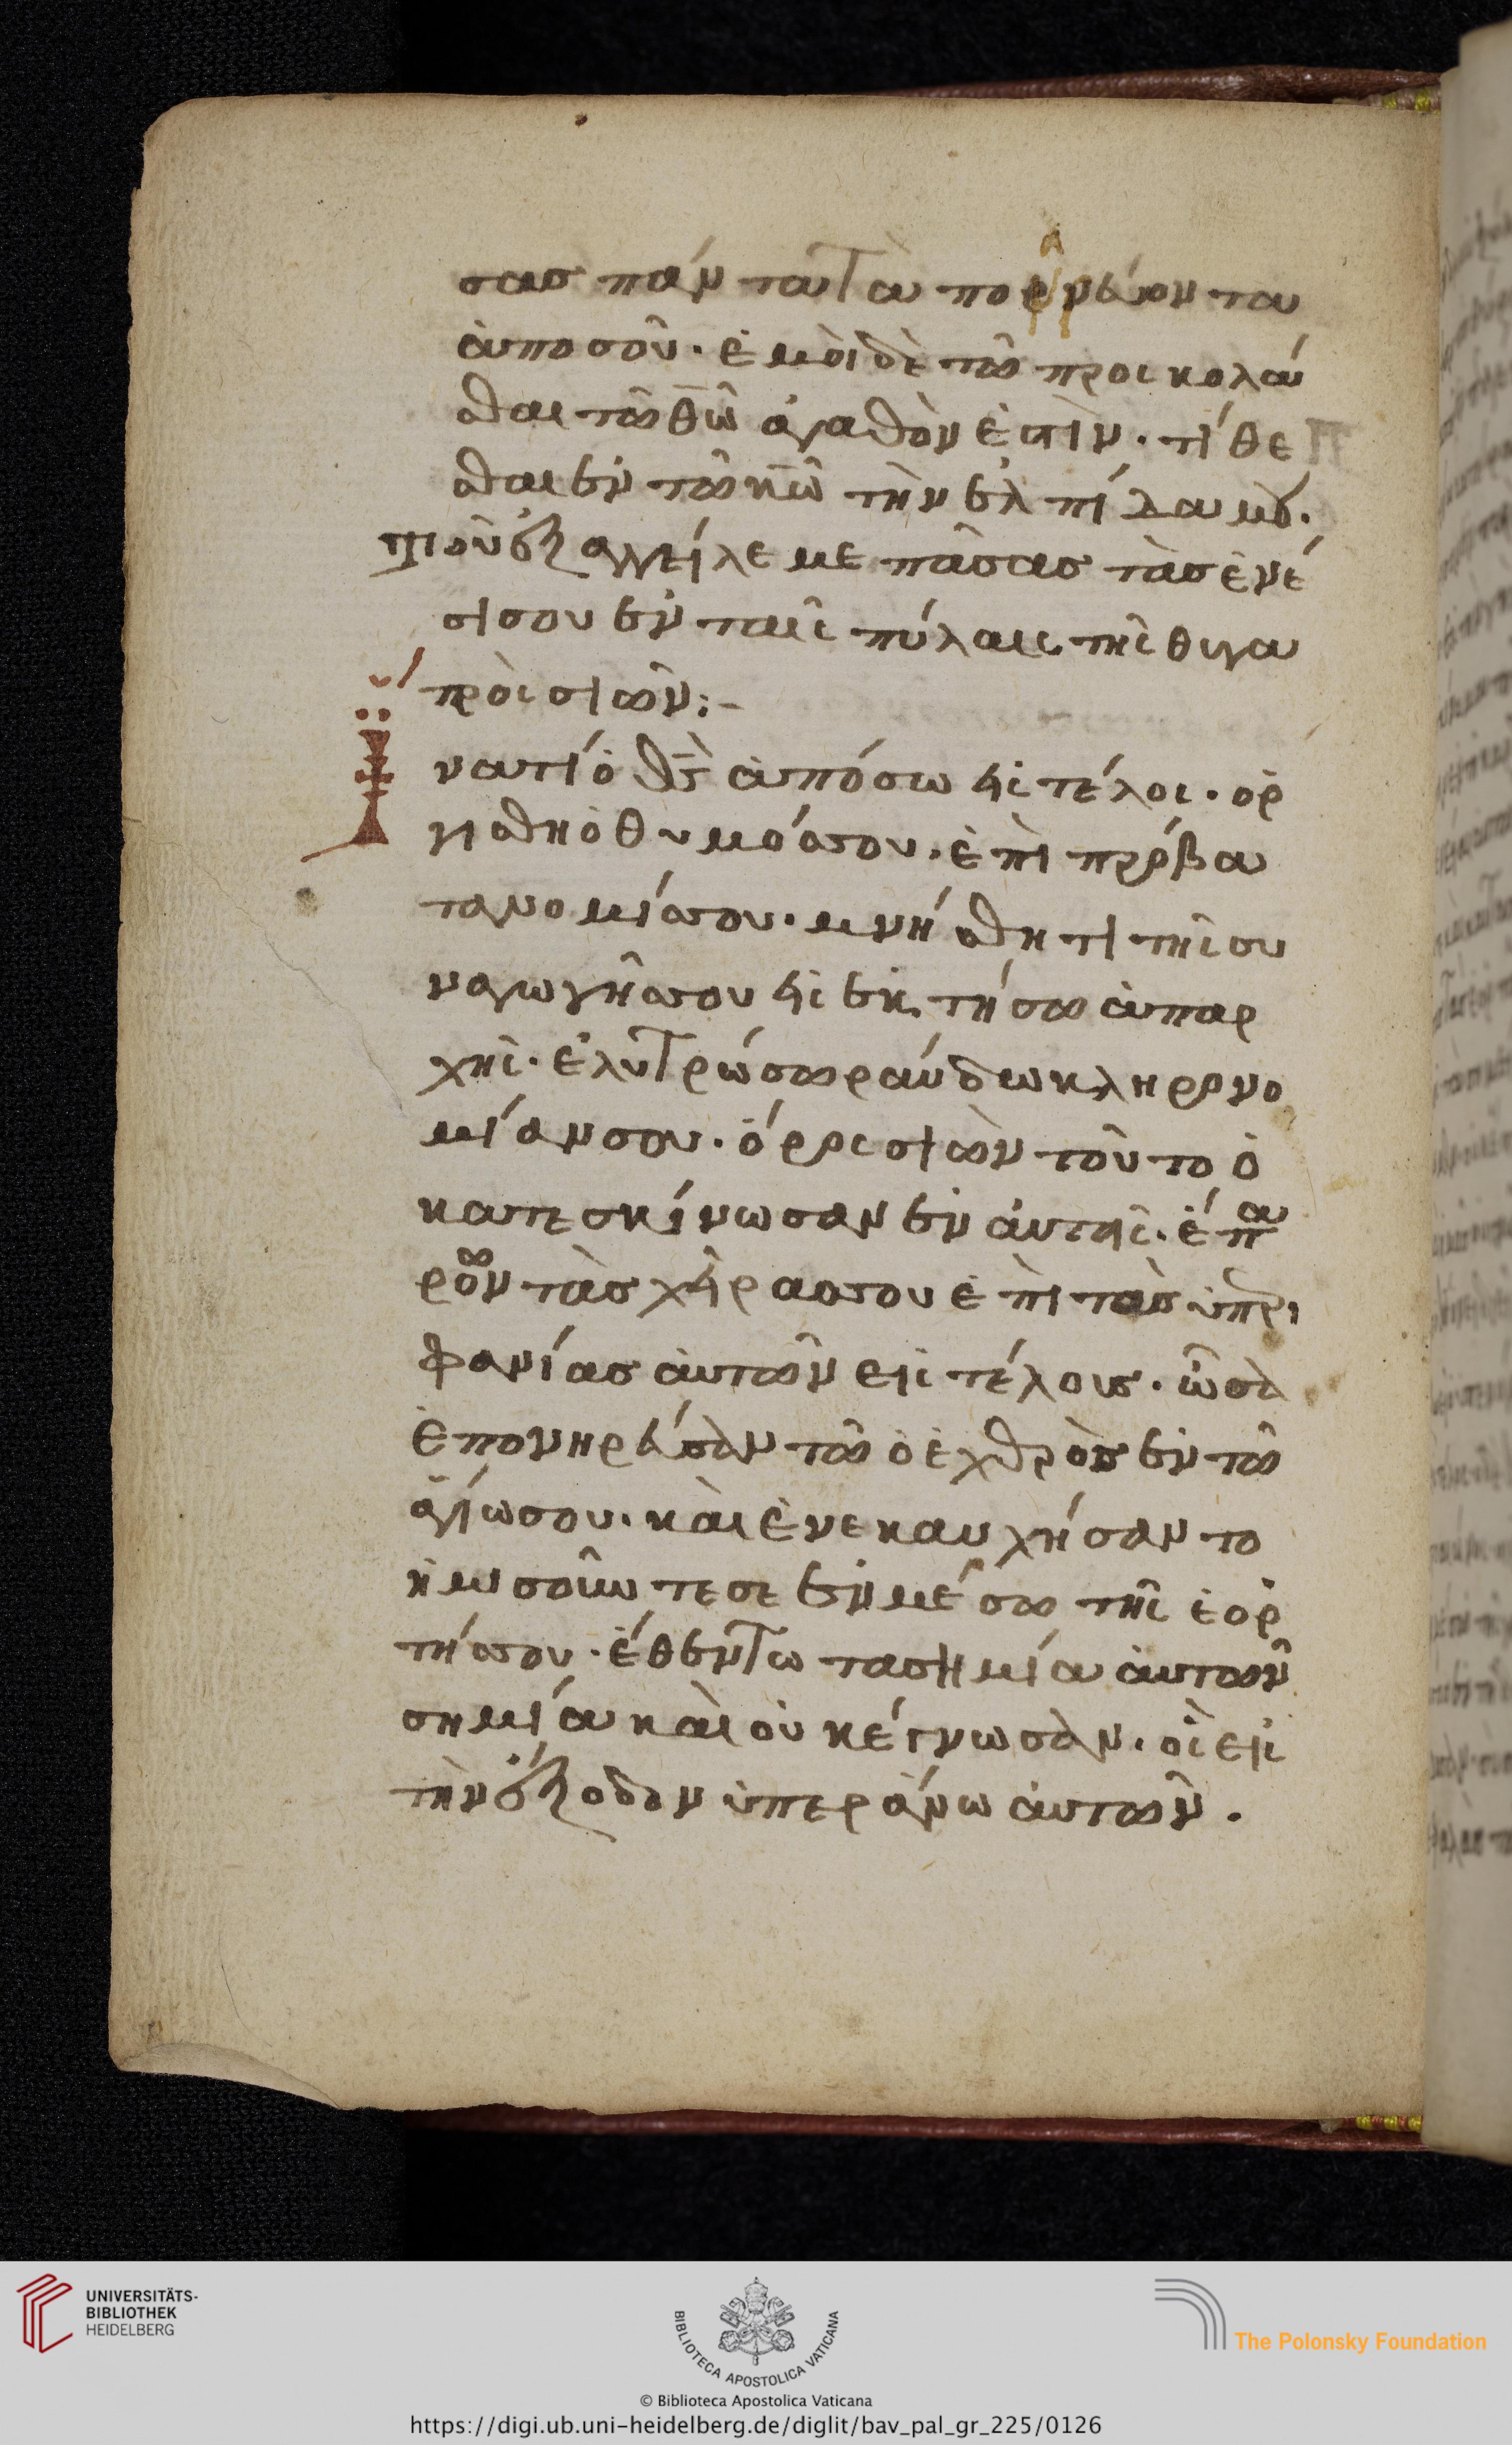 σας πάντα τὰ πορνεύοντα
ἀπο σοῦ. ἐμὸι δὲ τῶ προς κολά
σθαι τῶ θ̅ω̅ ἀγαθὸν ἐστὶν. τί θε
σθαι ἐν τῶ κ̅ω̅ τὴν ἐλπίδα μου.
τοῦ ἐξαγγείλε με πᾶσας τὰς ἐνέ
σισου ἐν ταῖς πύλαις τῆς θυγα
τρὸς σιῶν:-
ϊνατί ὁ θ̅ς̅ ἀπόσω εἰς τέλος. ὀρ
γισθη ὁ θυμόσσου. ἐπὶ πρόβα
τα νομίσσου. μνήσθητι τῆς συ
ναγωγῆσσου εἰς ἐκτήσω ἀπαρ
χῆς. ἐλυτρώσω ράυδω κληρονο
μίανσου. ὄρος σιὼν τοῦτο ὃ
κατεσκίνωσαν ἐν ἀυτῆς. ἔπα
ρον τὰς χεῖρασσου ἐπὶ τὰς ὑπερι
φανίας ἀυτῶν εἰς τέλους. ὥσα
ἐπονηρέυσὰν τῶ ὁ ἐχθρὸς ἐν τῶ
ἁγίωσου. κὰι ἐνεκαυχήσαν το
ἡμισοῦν τεσε ἐν μέσω τῆς ἑορ
τήσσου. ἔθεντω τα σημία ἀυτῶν
σημία κὰι οὐκ έγνωσὰν. ὁι εἰς
τὴν ἔξοδον ὑπεράνω ἀυτῶν.
UNIVERSITÄTS-
BIBLIOTHEK
HEIDELBERG
BIBLIOTECA APOSTOLICA VATICANA
The Polonsky Foundation
© Biblioteca Apostolica Vaticana
https://digi.ub.uni-heidelberg.de/diglit/bav_pal_gr_225/0126